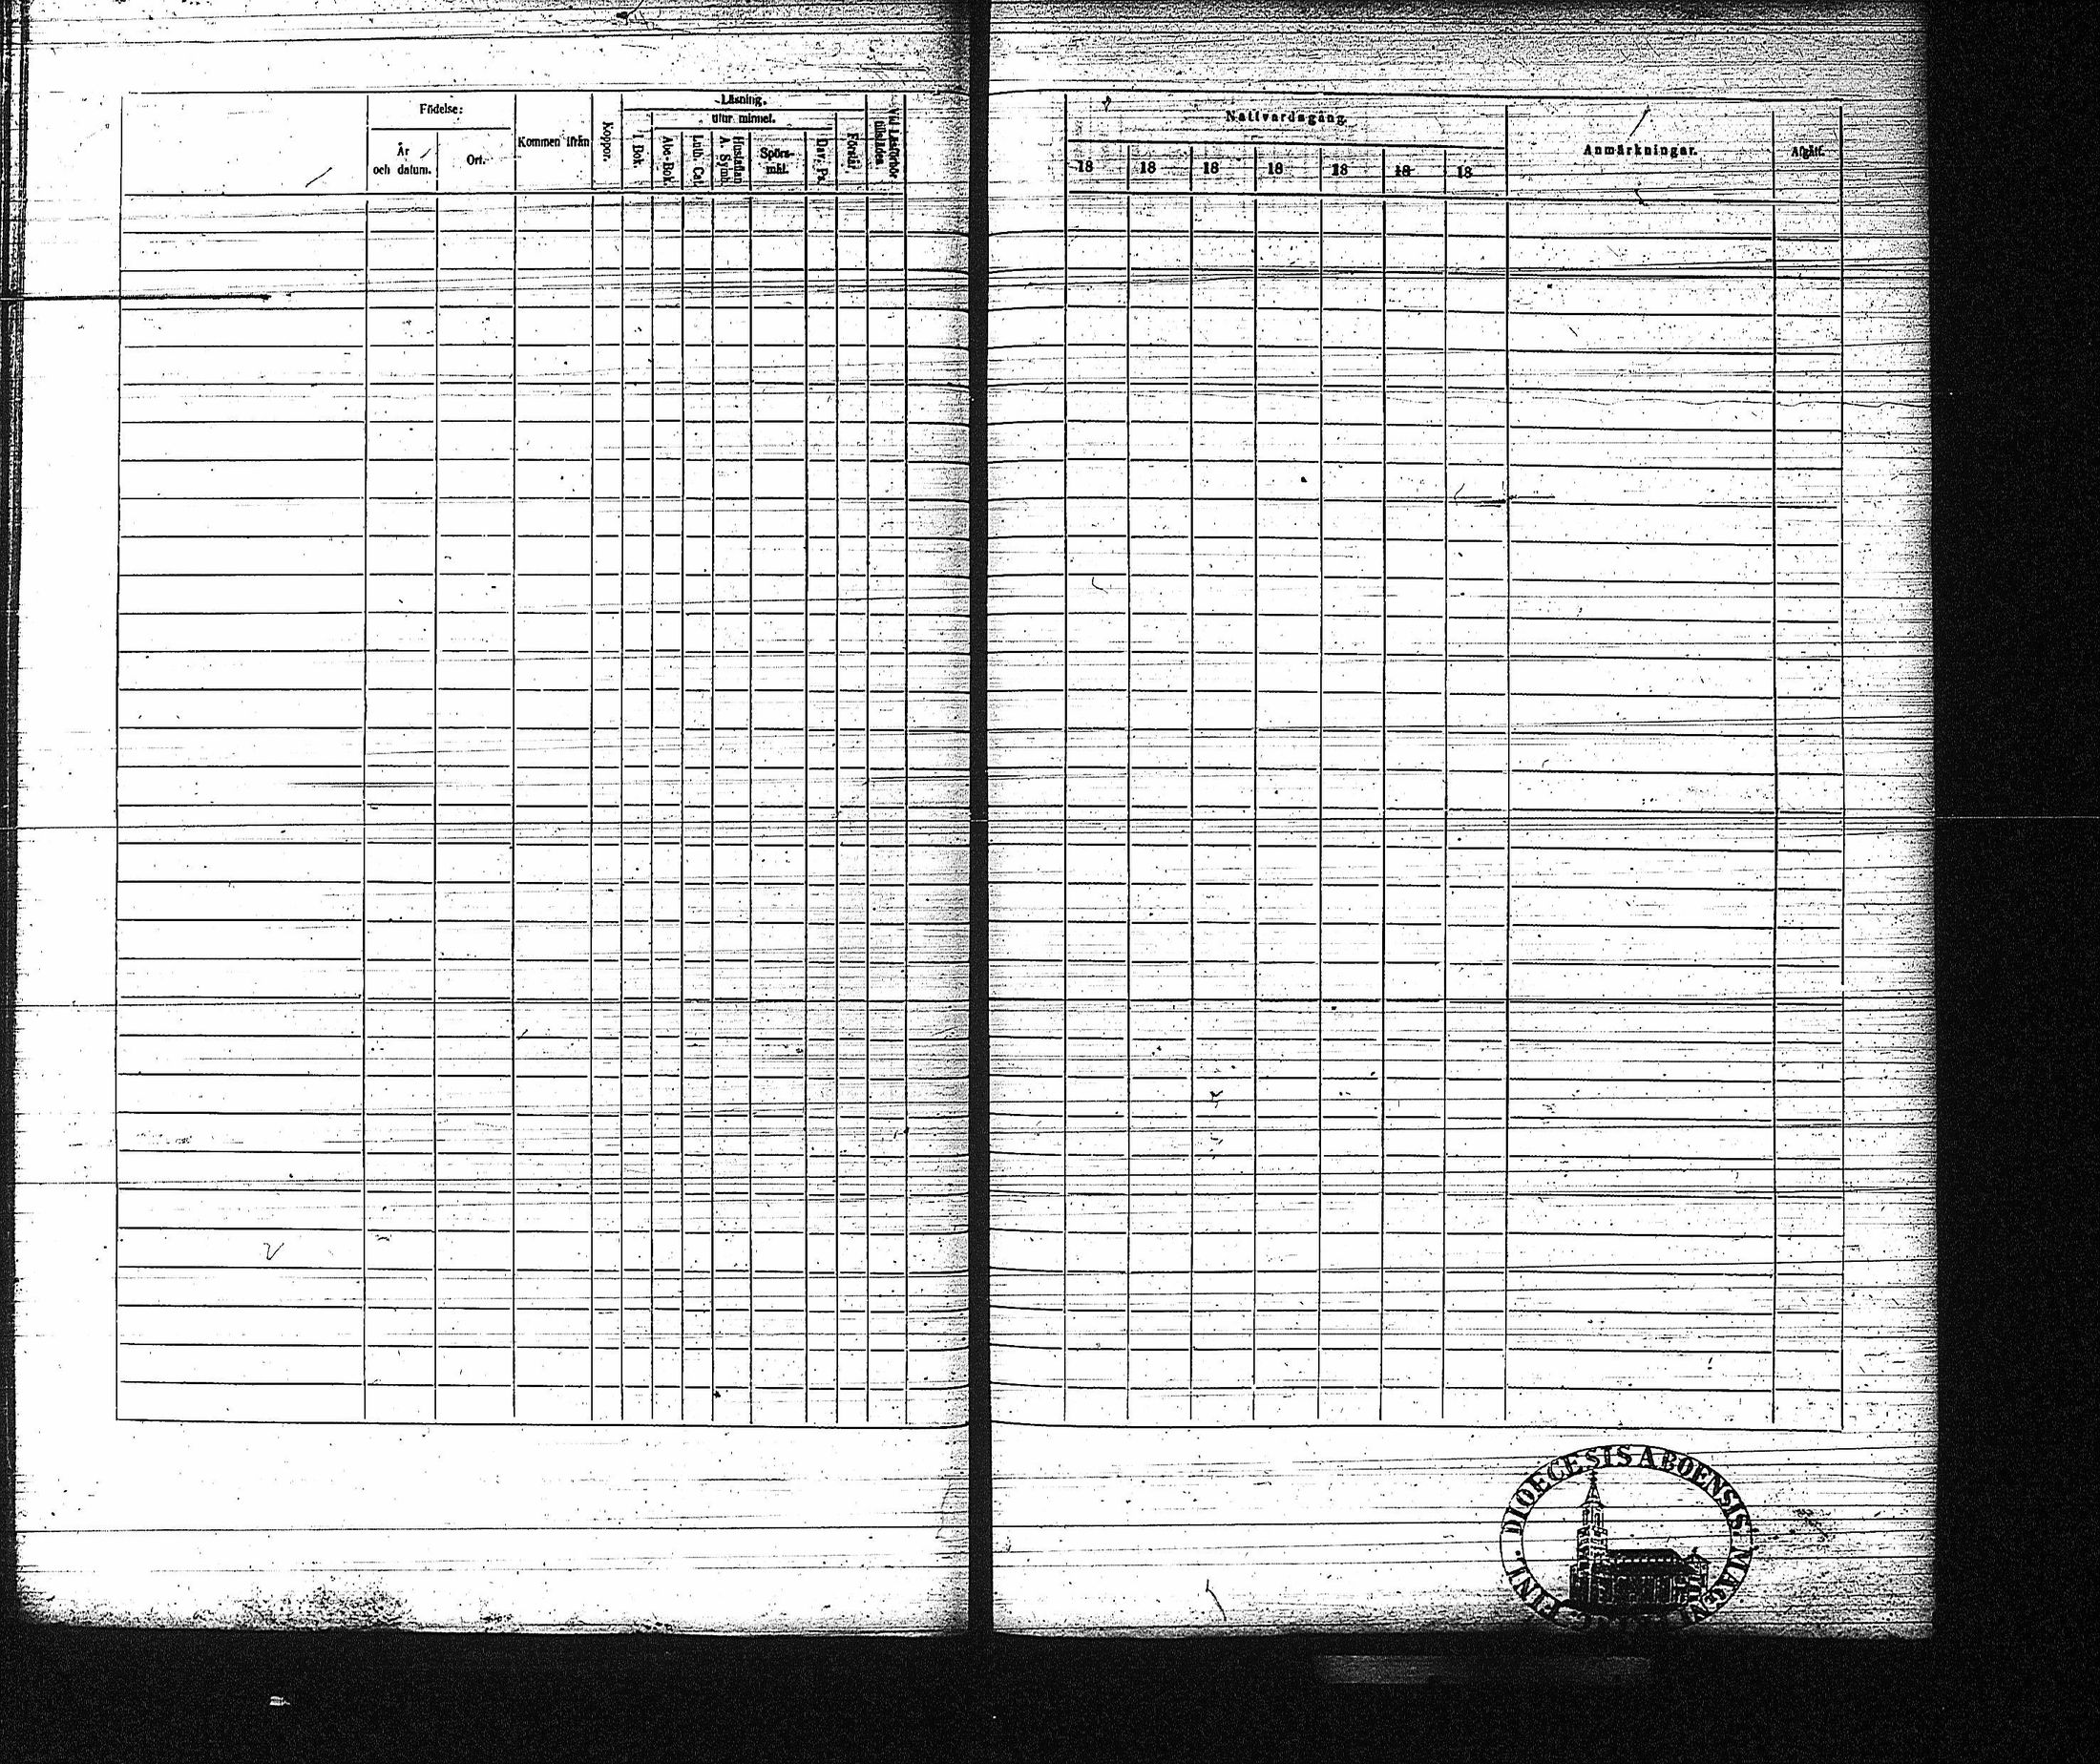 Födelse:
År
och datum.
Ort.
Kommen ifrån
Koppor.
Läsning.
I Bok.
utur minnet.
Abc-Bok.
Luth. Cat.
Hustaflan
A. Symb.
Spörs-
mål.
Dav. Ps.
Förstår.
Vid Läsförhör
tillstädes.
Nattvardsgång.
18 18 18 18 18 18 18
Anmärkningar.
Afgått.
DIOECESIS ABOENSIS
FINL.